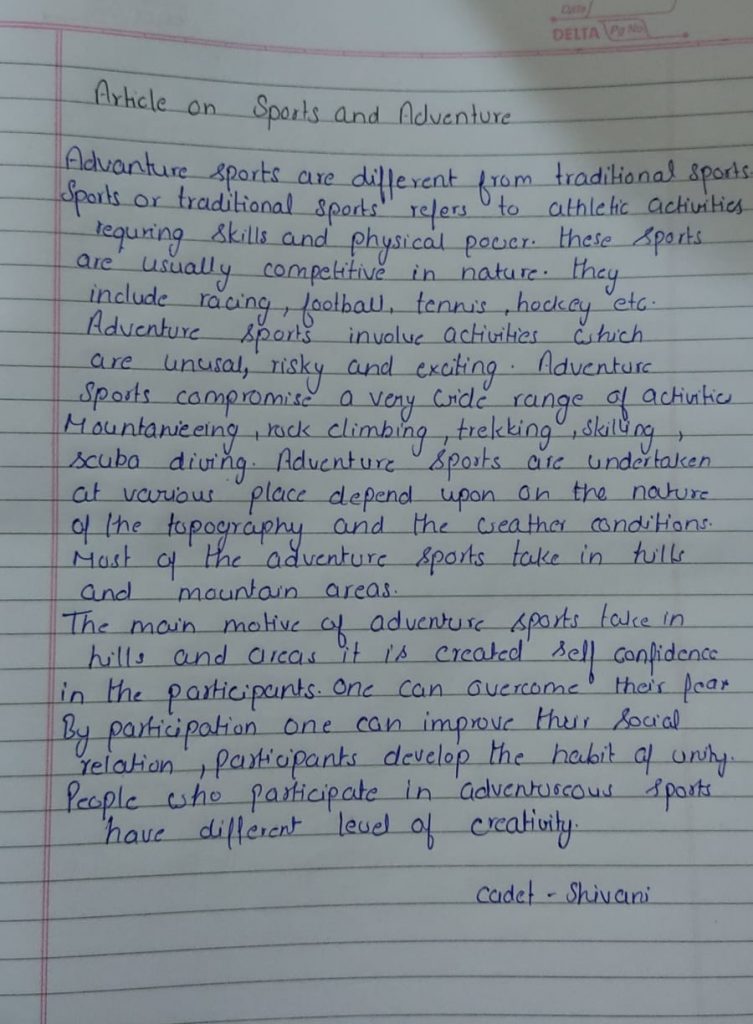 Date
DELTA Pg No
Article on Sports and Adventure
Advanture sports are different from traditional sports.
Sports or traditional sports refers to athletic activities
requring skills and physical power. these sports
are usually competitive in nature. they
include racing, football, tennis, hockey etc.
Adventure sports involve activities which
are unusal, risky and exciting. Adventure
Sports compromise a very wide range of activitie
Mountanieeing, rock climbing, trekking, skilling,
scuba diving. Adventure sports are undertaken
at various place depend upon on the nature
of the topography and the weather conditions.
Most of the adventure sports take in hills
and mountain areas.
The main motive of adventure sports take in
hills and areas it is created self confidence
in the participants. One can overcome their fear
By participation one can improve their social
relation, participants develop the habit of unity.
People who participate in adventuscous sports
have different level of creativity.
Cadet - Shivani